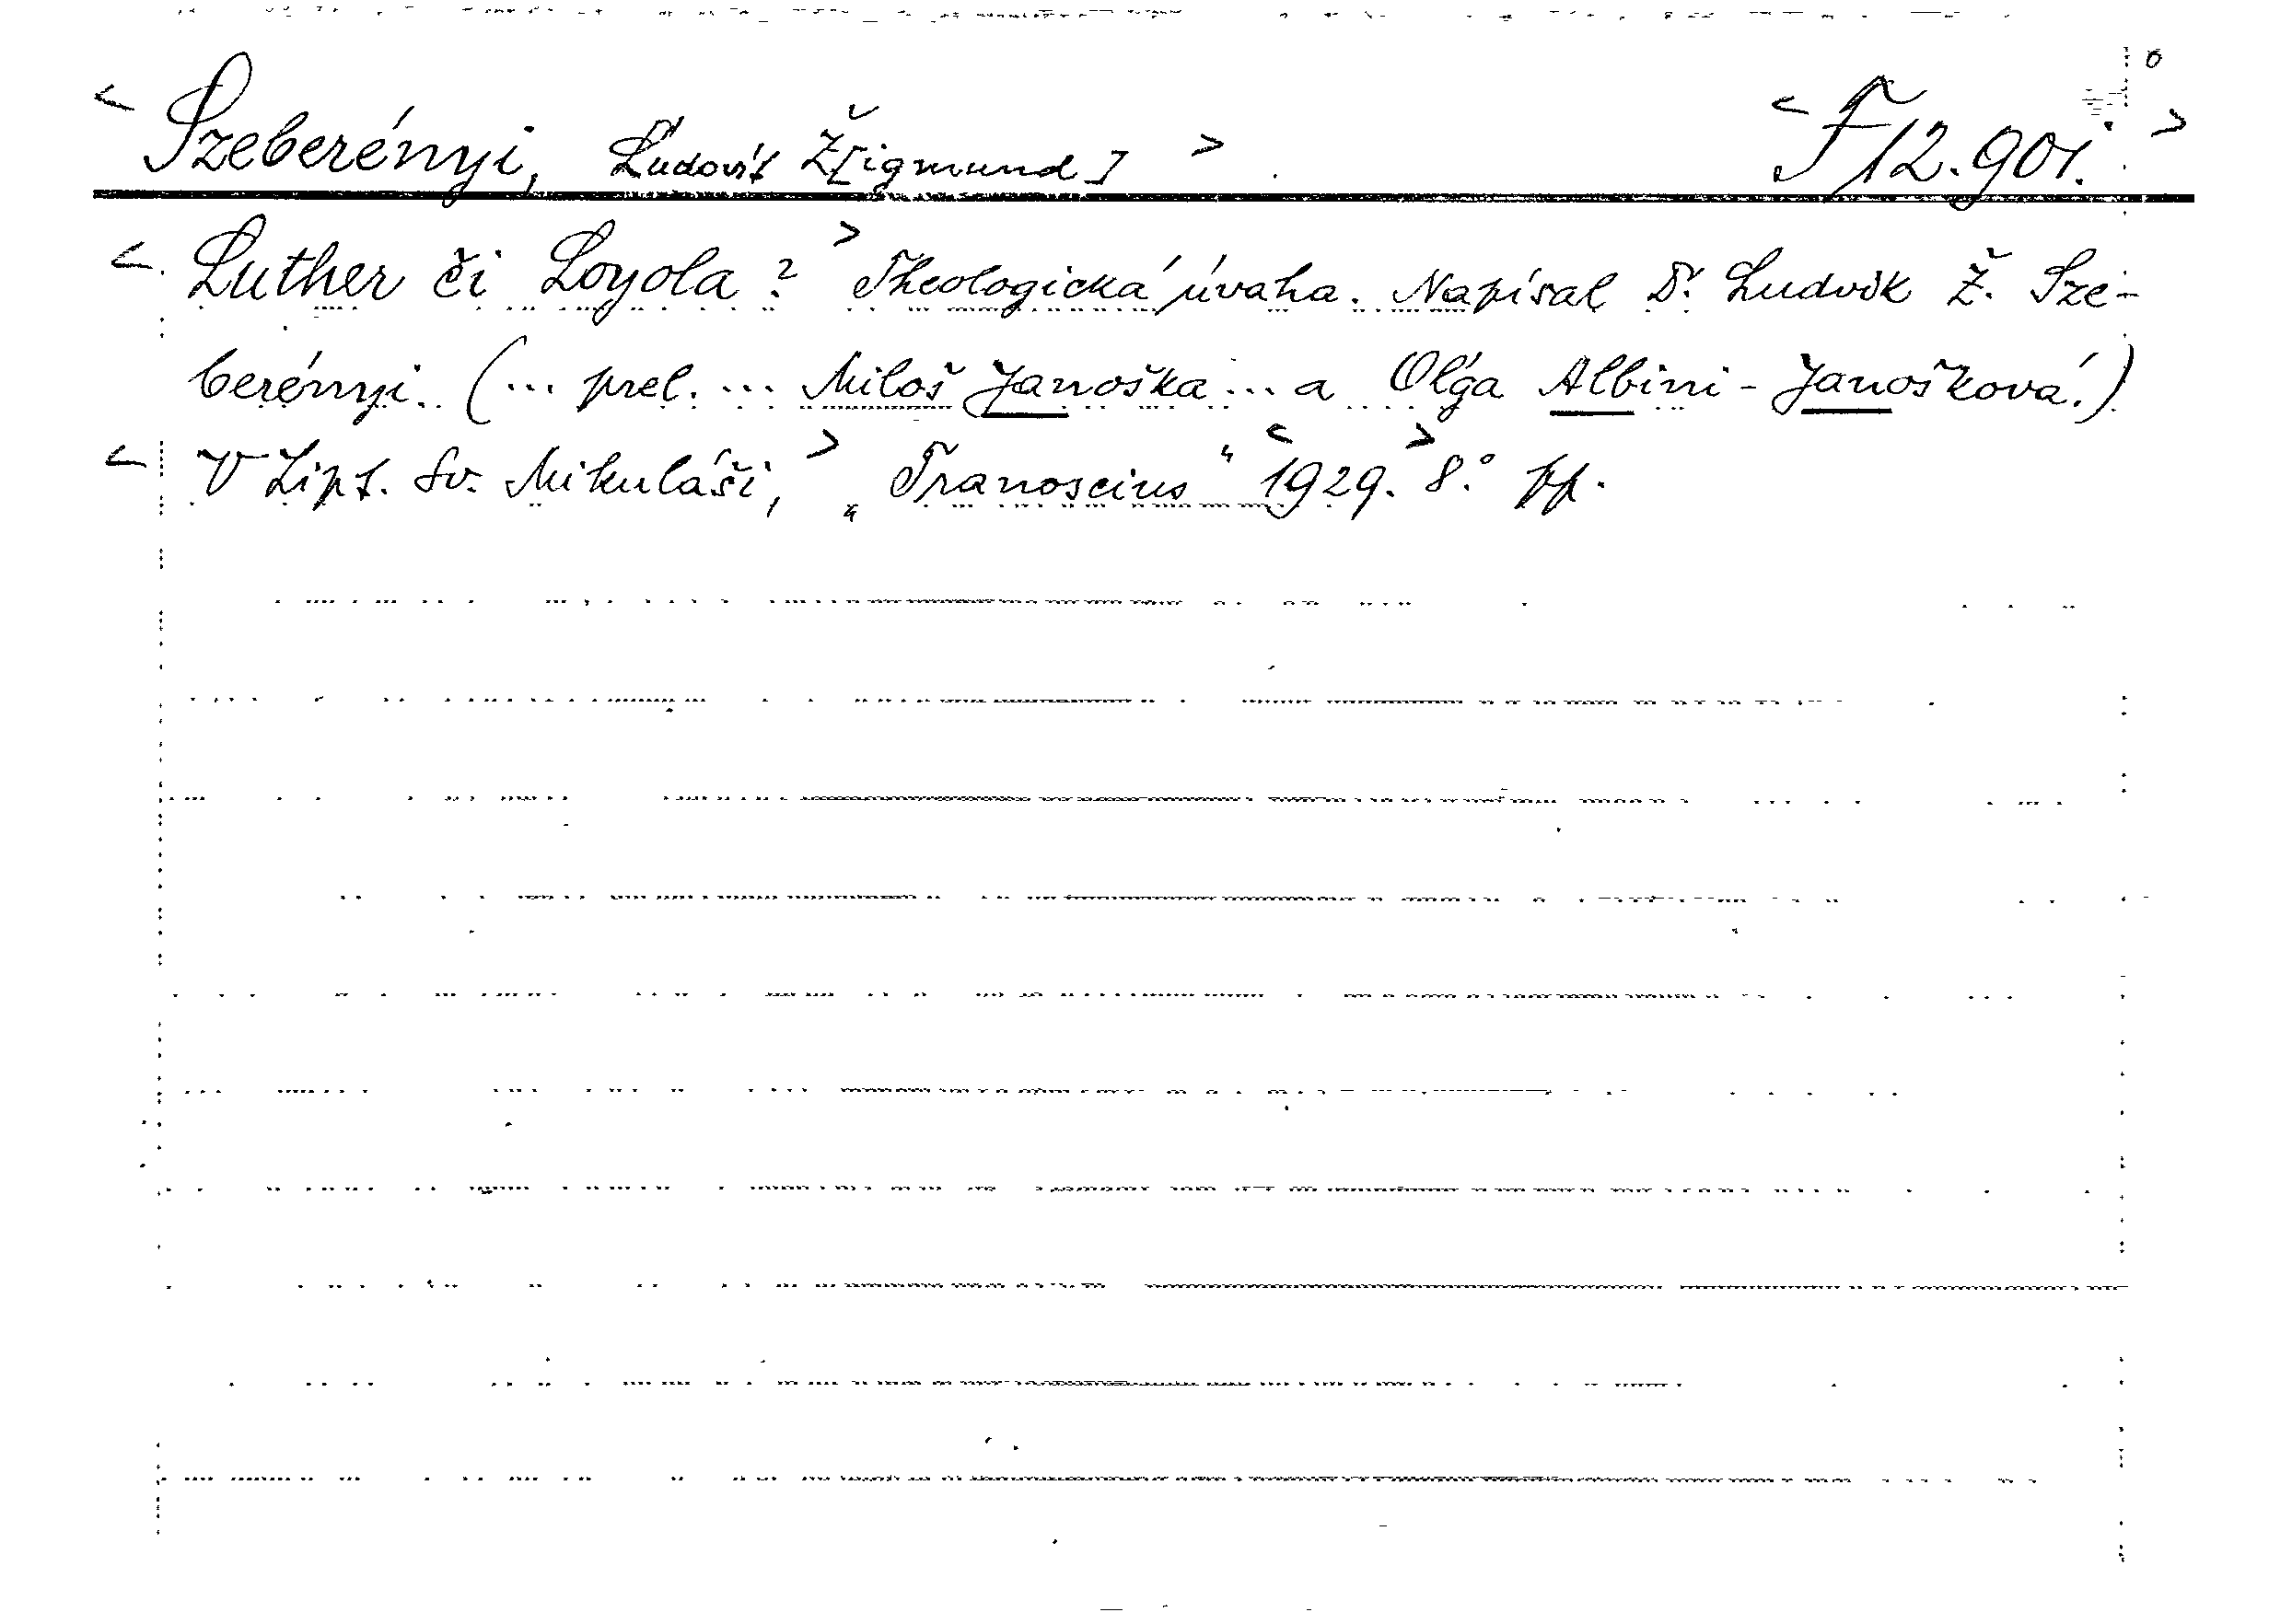 < Szeberényi, Ľudovít Ž[igmund] > < F 12.901. >
< Luther či Loyola? > Theologická úvaha. Napísal Dr. Ludvík Ž. Sze-
berényi. (... prel. ... Miloš Janoška ... a Oľga Albini - Janošková.)
< V Lipt. Sv. Mikuláši, > „Tranoscius" < 1929. > 8.° pp.